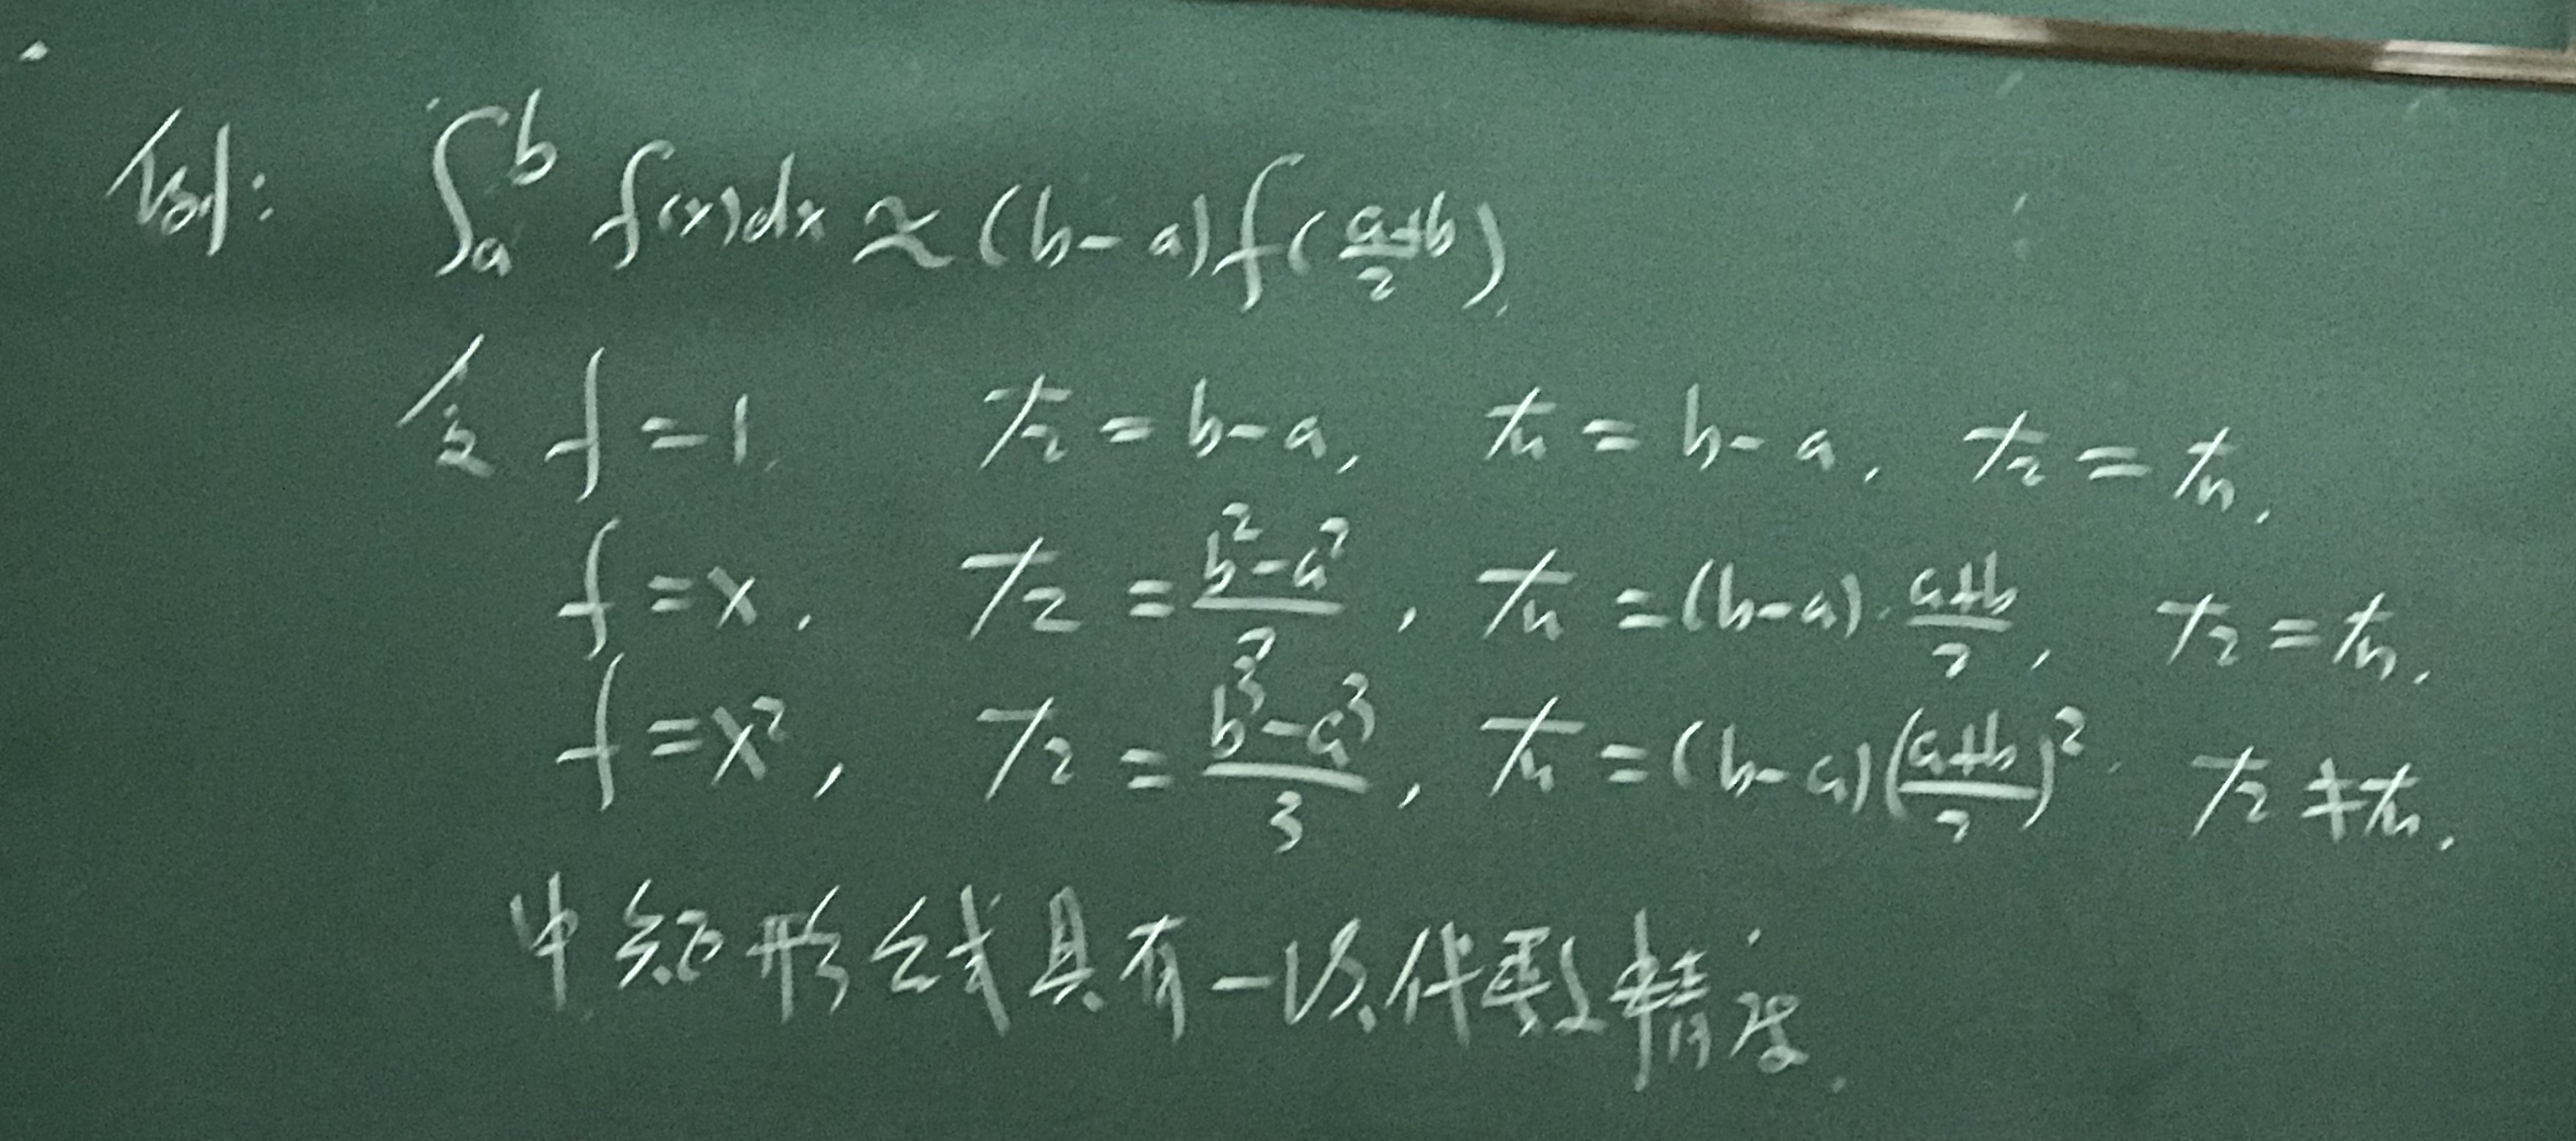 例: ∫_a^b f(x)dx ≈ (b-a)f(\frac{a+b}{2}).
令 f=1. 左=b-a, 右=b-a, 左=右.
f=x, 左=\frac{b^2-a^2}{2}, 右=(b-a)·\frac{a+b}{2}, 左=右.
f=x^2, 左=\frac{b^3-a^3}{3}, 右=(b-a)(\frac{a+b}{2})^2. 左≠右.
中矩形公式具有一次代数精度.